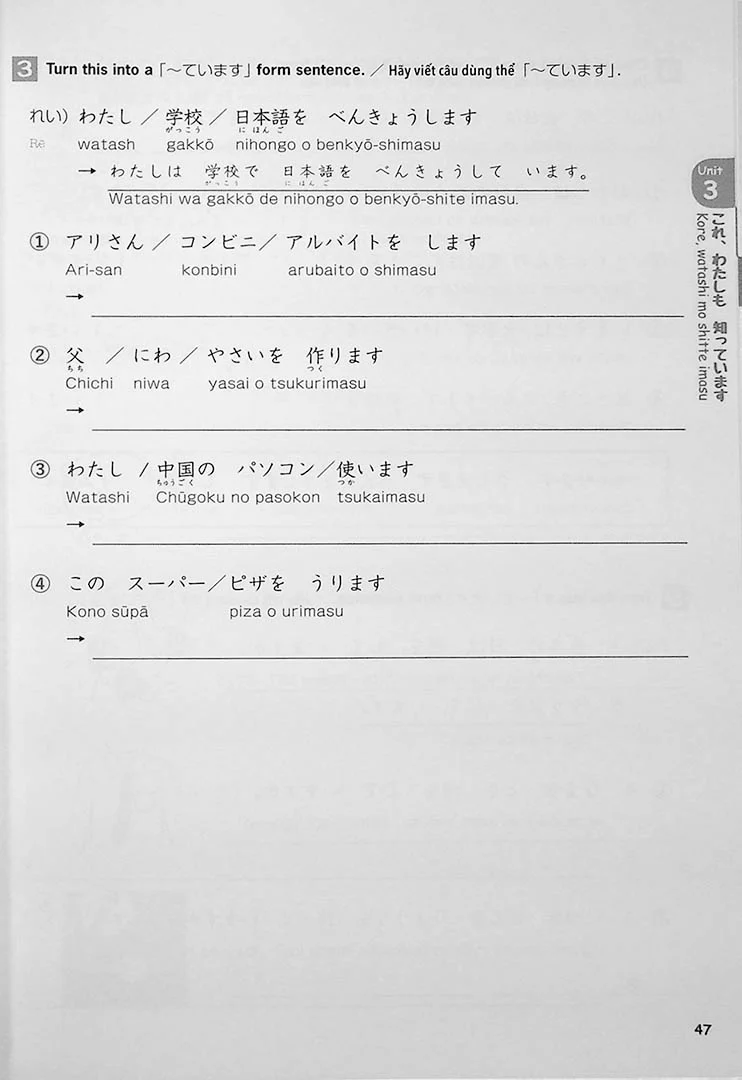 3 Turn this into a「～ています」form sentence. ／ Hãy viết câu dùng thể「～ています」.
れい）わたし ／ 学校 ／ 日本語を べんきょうします
がっこう に ほん ご
Rē watash gakkō nihongo o benkyō-shimasu
→ わたしは 学校で 日本語を べんきょうして います。
がっこう に ほん ご
Watashi wa gakkō de nihongo o benkyō-shite imasu.
① アリさん ／ コンビニ ／ アルバイトを します
Ari-san konbini arubaito o shimasu
→
② 父 ／ にわ ／ やさいを 作ります
ちち つく
Chichi niwa yasai o tsukurimasu
→
③ わたし ／ 中国の パソコン ／ 使います
ちゅうごく つか
Watashi Chūgoku no pasokon tsukaimasu
→
④ この スーパー ／ ピザを うります
Kono sūpā piza o urimasu
→
Unit
3
これ、わたしも 知っています
Kore, watashi mo shitte imasu
47